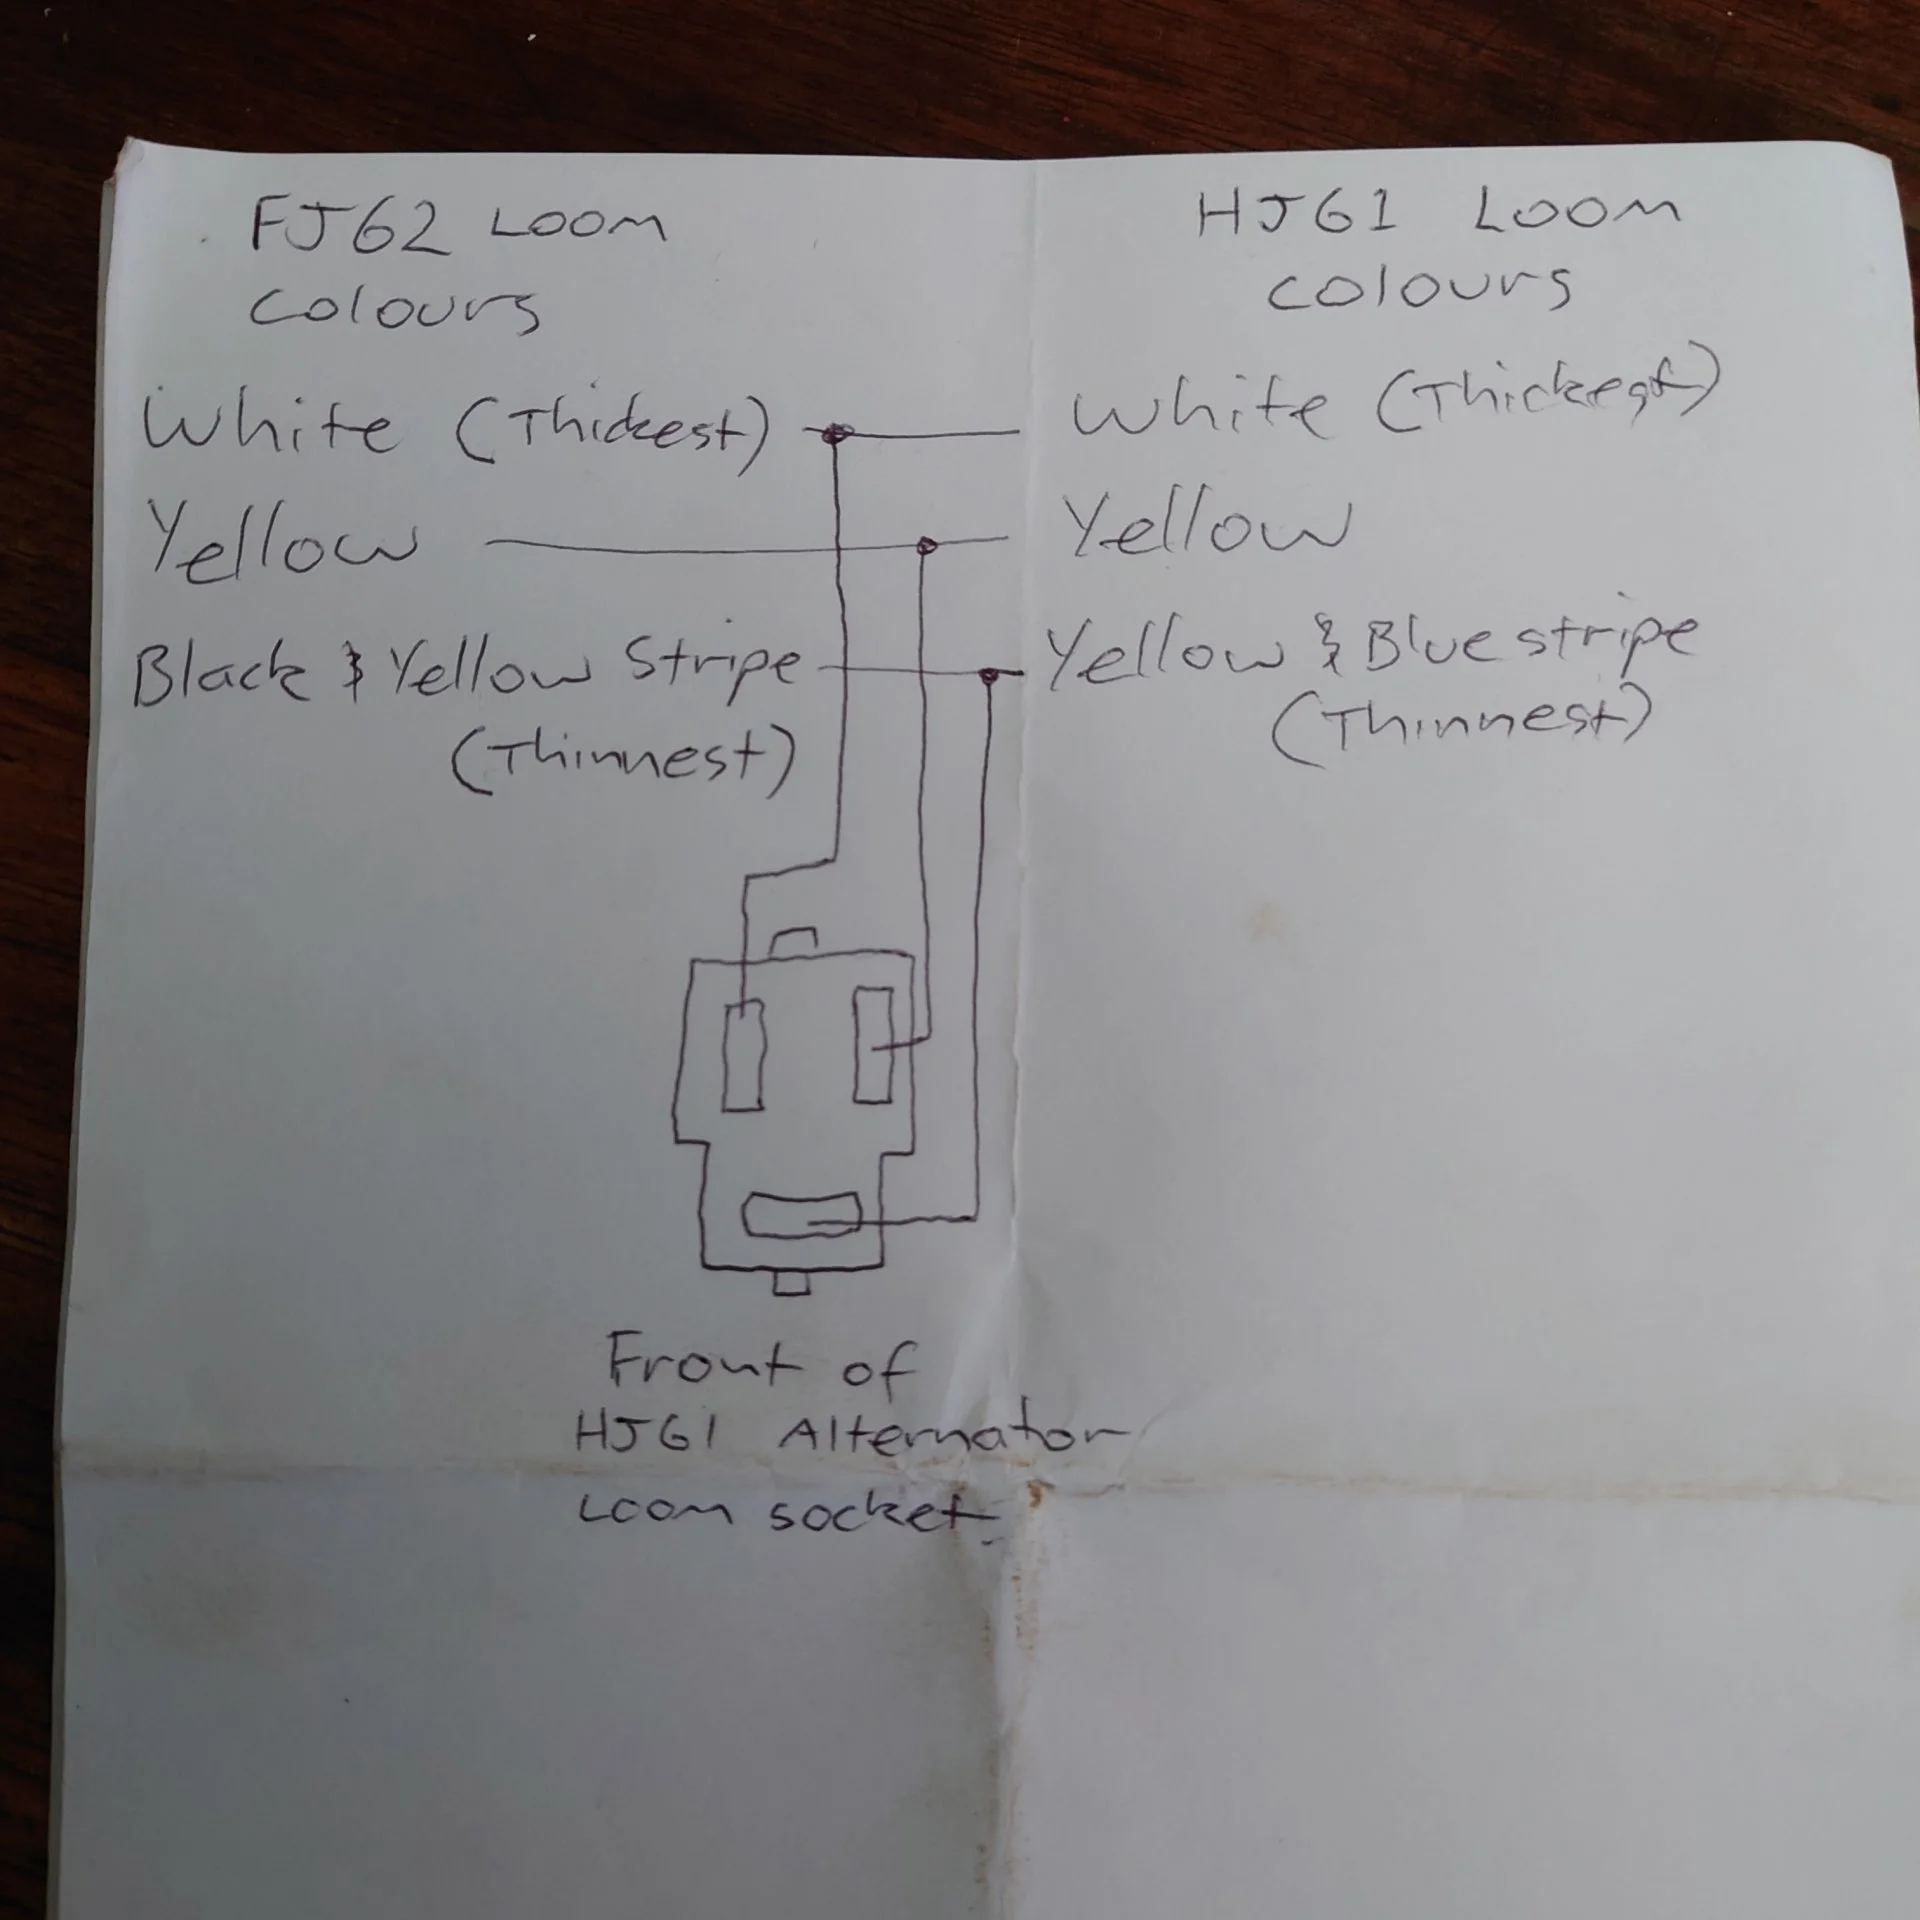 FJ62 Loom
colours
HJ61 Loom
colours
White (Thickest)
White (Thickest)
Yellow
Yellow
Black & Yellow Stripe
(Thinnest)
Yellow & Blue stripe
(Thinnest)
Front of
HJ61 Alternator
Loom socket